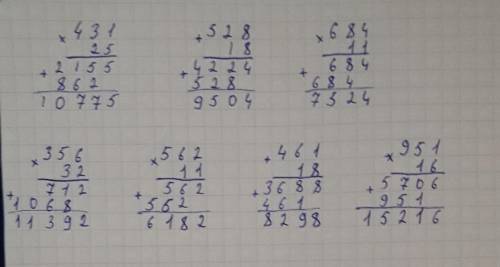 × 431
25
+ 2155
862
10775
+ 528
18
+ 4224
528
9504
× 684
11
+ 684
684
7524
× 356
32
+ 712
1068
11392
× 562
11
+ 562
562
6182
+ 461
18
+ 3688
461
8298
× 951
16
+ 5706
951
15216